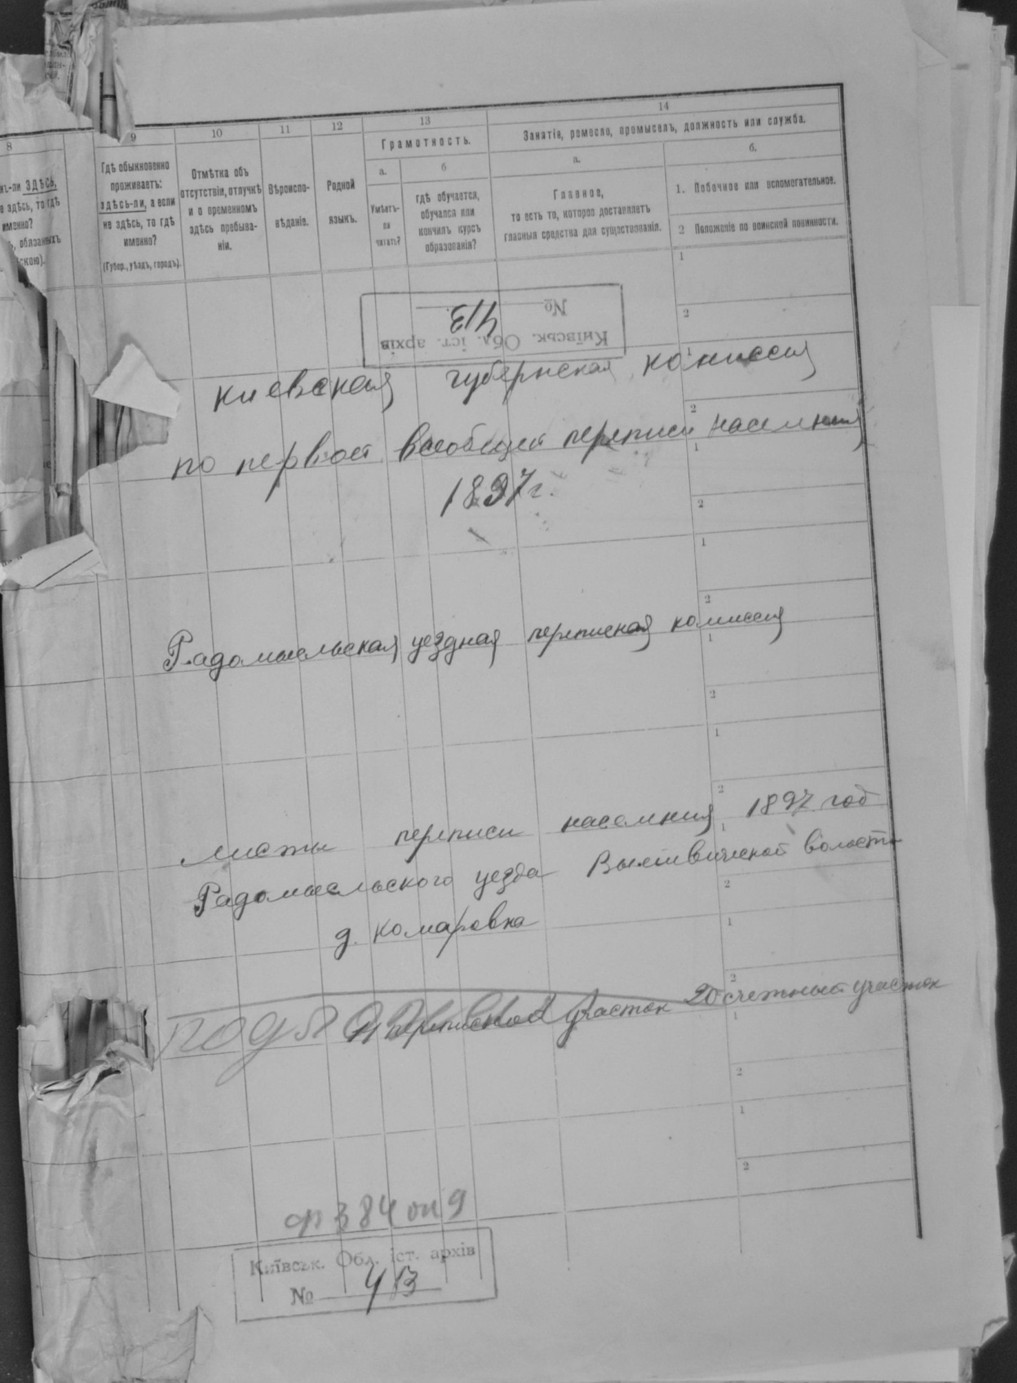 8 9 10 11 12 13 14
ЗДѢСЬ,
именно?
обязанныхъ
Гдѣ обыкновенно
проживаетъ:
здѣсь-ли, а если
не здѣсь, то гдѣ
именно?
(Губер., уѣздъ, городъ).
Отмѣтка объ
отсутствіи, отлучкѣ
и о временномъ
здѣсь пребыва-
ніи.
Вѣроиспо-
вѣданіе.
Родной
языкъ.
Грамотность.
а. б
Умѣетъ-
ли
читать?
гдѣ обучается,
обучался или
кончилъ курсъ
образованія?
Занятіе, ремесло, промыселъ, должность или служба.
а. б.
Главное,
то есть то, которое доставляетъ
главныя средства для существованія.
1. Побочное или вспомогательное.
2 Положеніе по воинской повинности.
Київськ. Обл. іст. архів
№ 413
киевская губернская комиссия
по первой всеобщей переписи населения
1897 г.
Радомысльская уездная переписная комиссия
листы переписи населения 1897 год
Радомысльского уезда волости
д. комаровка
переписной участок 20 счетный участок
ф 384 оп 9
Київськ. Обл. іст. архів
№ 413